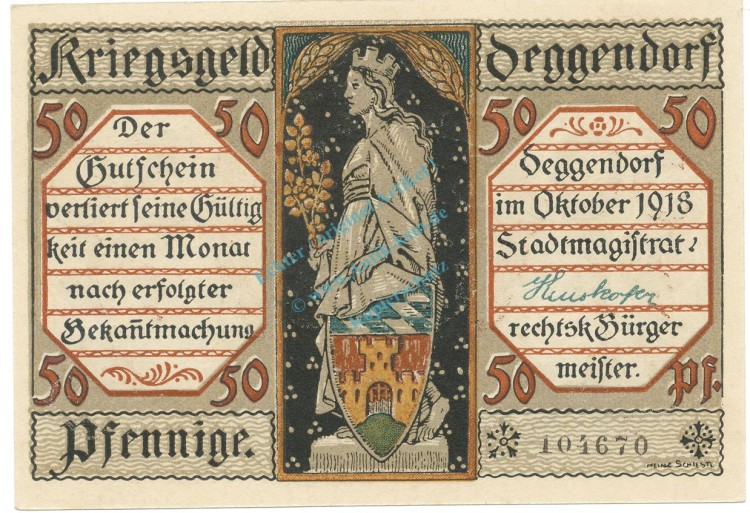 Kriegsgeld
Deggendorf
50 50
Der
Gutschein
verliert seine Gültig
keit einen Monat
nach erfolgter
Bekañtmachung
50 50
Pfennige.
50 50
Deggendorf
im Oktober 1918
Stadtmagistrat:
rechtsk Bürger
meister.
50 Pf.
104670
HEINZ SCHIESTL